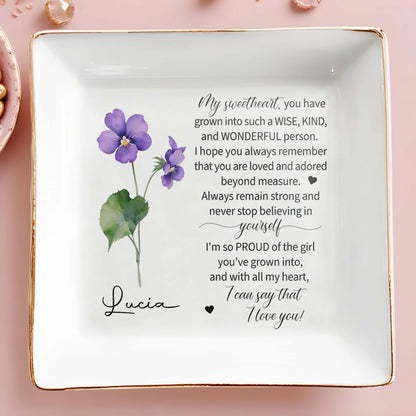 My sweetheart, you have
grown into such a WISE, KIND,
and WONDERFUL person.
I hope you always remember
that you are loved and adored
beyond measure.
Always remain strong and
never stop believing in
yourself
I'm so PROUD of the girl
you've grown into,
and with all my heart,
I can say that
I love you!
Lucia